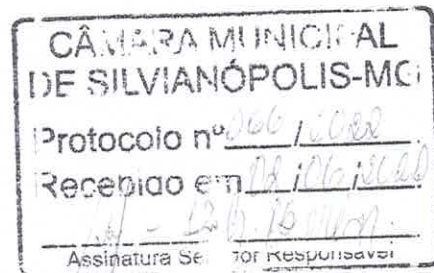 CÂMARA MUNICIPAL
DE SILVIANÓPOLIS-MG
Protocolo nº 066 / 2022
Recebido em 02/06/2022
Assinatura Servidor Responsável